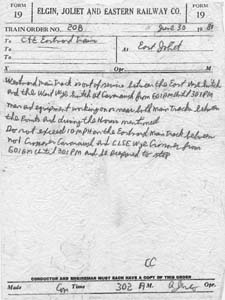 FORM 19 ELGIN, JOLIET AND EASTERN RAILWAY CO. FORM 19
TRAIN ORDER NO. 208 June 30
To C&E Eastward Trains At East Joliet
X Opr. M
Westward main track out of service between the East Wye Switch
and the West Wye Switch at from 601 AM until 301 PM
men and equipment working on or near both Main Tracks between
the Points and during the Hours mentioned
Do not exceed 10 MPH on the Eastward Main Track between
and Wye from
601 AM until 301 PM and be prepared to stop
CC
CONDUCTOR AND ENGINEMAN MUST EACH HAVE A COPY OF THIS ORDER
Made Com Time 302 A M Opr.